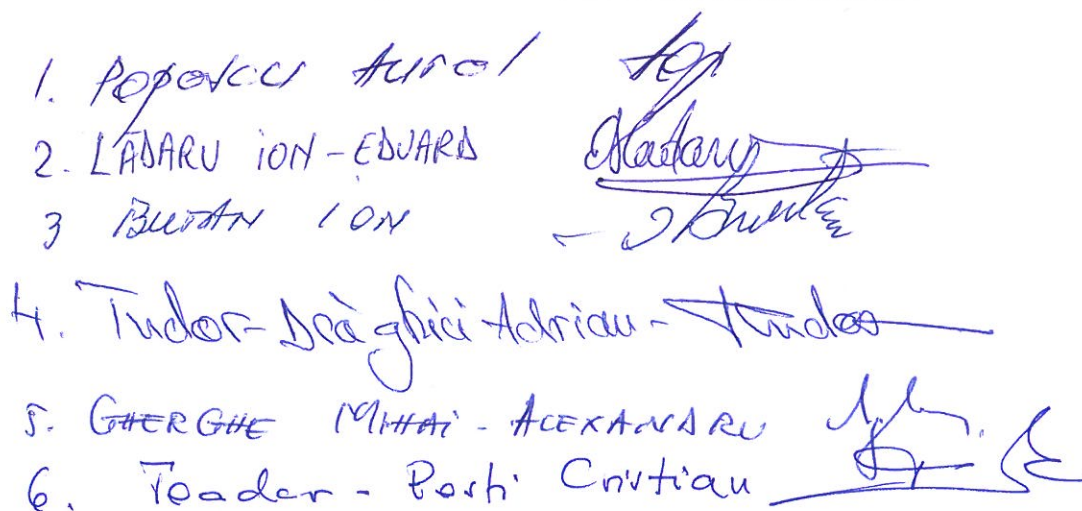 1. Popovici Aurel
2. LĂDARU ION-EDUARD
3 BUTAN ION
4. Tudor-Drăghici Adrian - Tudor
5. GHERGHE MIHAI - ALEXANDRU
6. Teodor - Cristian